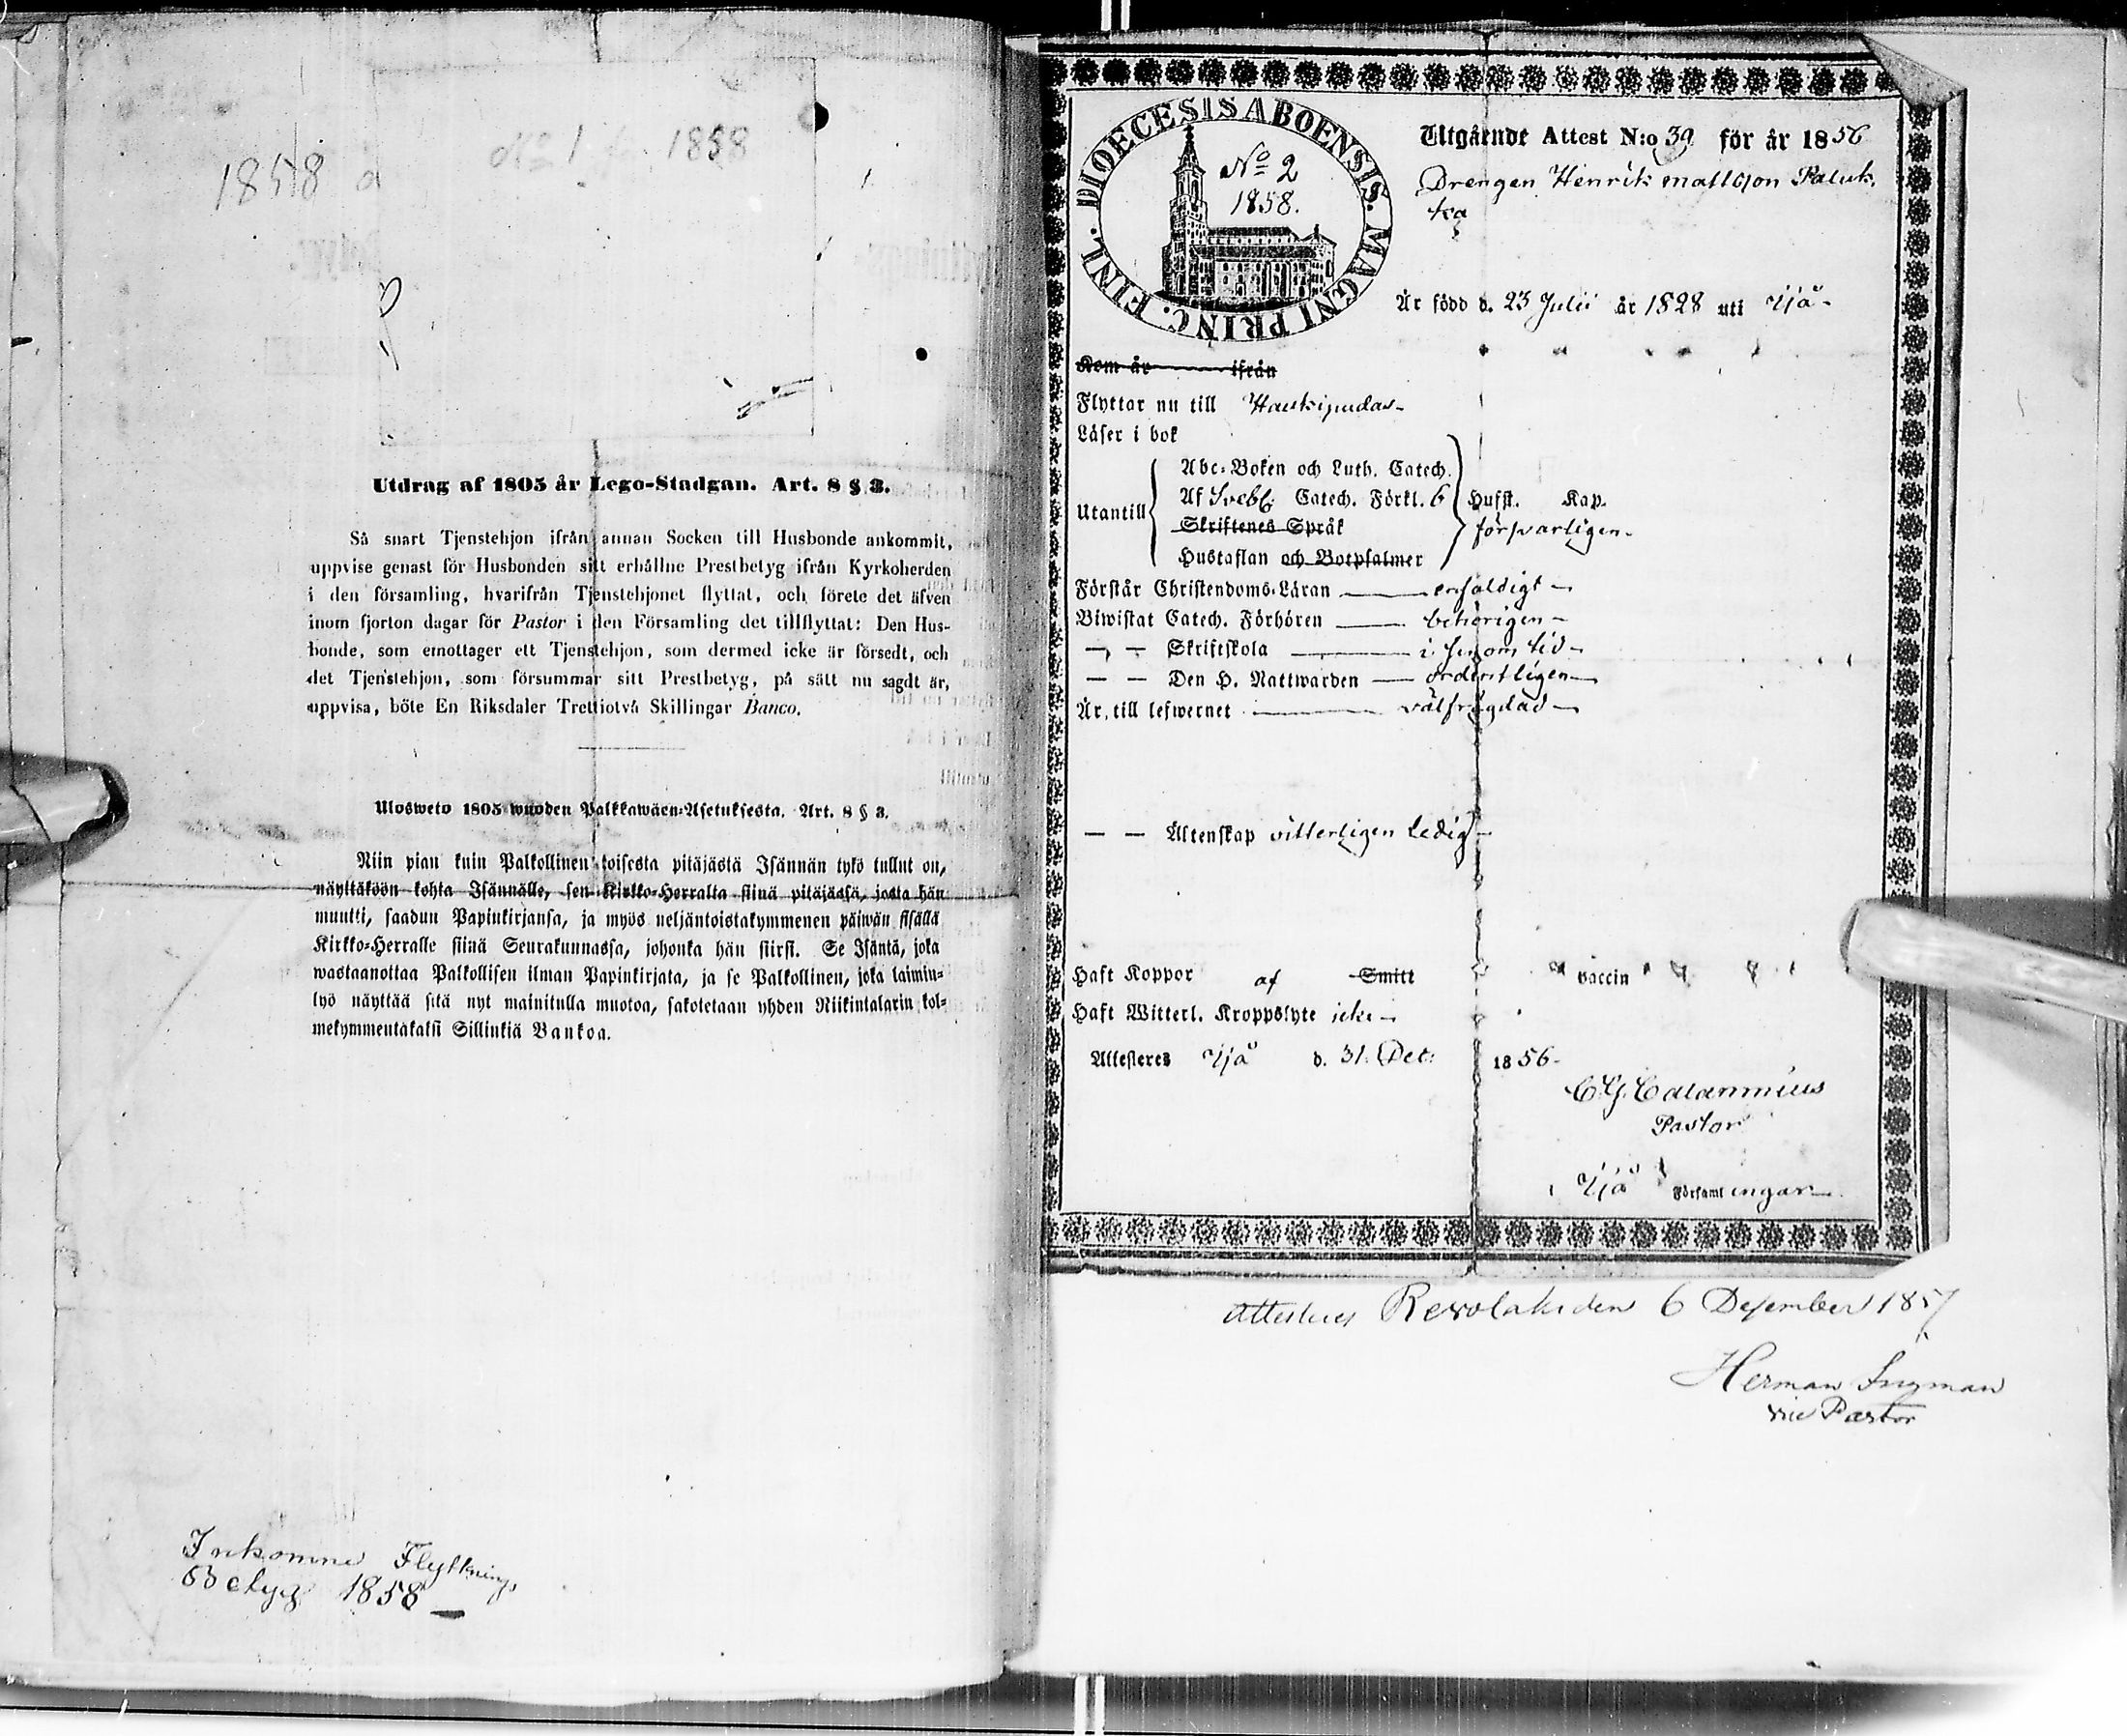 1858
No 1 1858
Utdrag af 1805 år Lego-Stadgan. Art. 8 § 3.
Så snart Tjenstehjon ifrån annan Socken till Husbonde ankommit,
uppvise genast för Husbonden sitt erhållne Prestbetyg ifrån Kyrkoherden
i den församling, hvarifrån Tjenstehjonet flyttat, och förete det äfven
inom fjorton dagar för Pastor i den Församling det tillflyttat: Den Hus-
bonde, som emottager ett Tjenstehjon, som dermed icke är försedt, och
det Tjenstehjon, som försummar sitt Prestbetyg, på sätt nu sagdt är,
uppvisa, böte En Riksdaler Trettiotvå Skillingar Banco.
Ulosweto 1805 wuoden Palkkawäen-Asetuksesta. Art. 8 § 3.
Niin pian kuin Palkollinen toisesta pitäjästä Isännän tykö tullut on,
näyttäköön kohta Isännälle, sen Kirkko-Herralta siinä pitäjässä, josta hän
muutti, saadun Papinkirjansa, ja myös neljäntoistakymmenen päiwän sisällä
Kirkko-Herralle siinä Seurakunnassa, johonka hän siirsi. Se Isäntä, joka
wastaanottaa Palkollisen ilman Papinkirjata, ja se Palkollinen, joka laimin-
lyö näyttää sitä nyt mainitulla muotoa, sakotetaan yhden Riikintalarin kol-
mekymmentäkaksi Sillinkiä Bankoa.
Inkomne Flyttnings
Betyg 1858
DIOECESIS ABOENSIS. MAGNI PRINC. FINL.
No 2
1858.
Utgående Attest N:o 39 för år 1856
Drengen Henrik Mattsson Paluk-
ka
Är född d. 23 Julii år 1828 uti Ijå
Kom år ifrån
Flyttar nu till Haukipudas
Läser i bok
Utantill
Abc-Boken och Luth. Catech.
Af Svebl. Catech. Förkl. 6 Hufst. Kap.
Skriftenes Språk försvarligen
Hustaflan och Botpsalmer
Förstår Christendoms-Läran enfaldigt
Biwistat Catech. Förhören behörigen
— — Skriftskola i sinom tid
— — Den H. Nattwarden ordentligen
Är, till lefwernet välfrägdad
— — Äktenskap vitterligen ledig
Haft Koppor af Smitt vaccin
Haft Witterl. Kroppslyte icke
Attesteres Ijå d. 31. Dec: 1856
C. G. Calamnius
Pastor
Ijå Församlingar
Attesteres Revolaks den 6 December 1857
Herman Ingman
vice Pastor